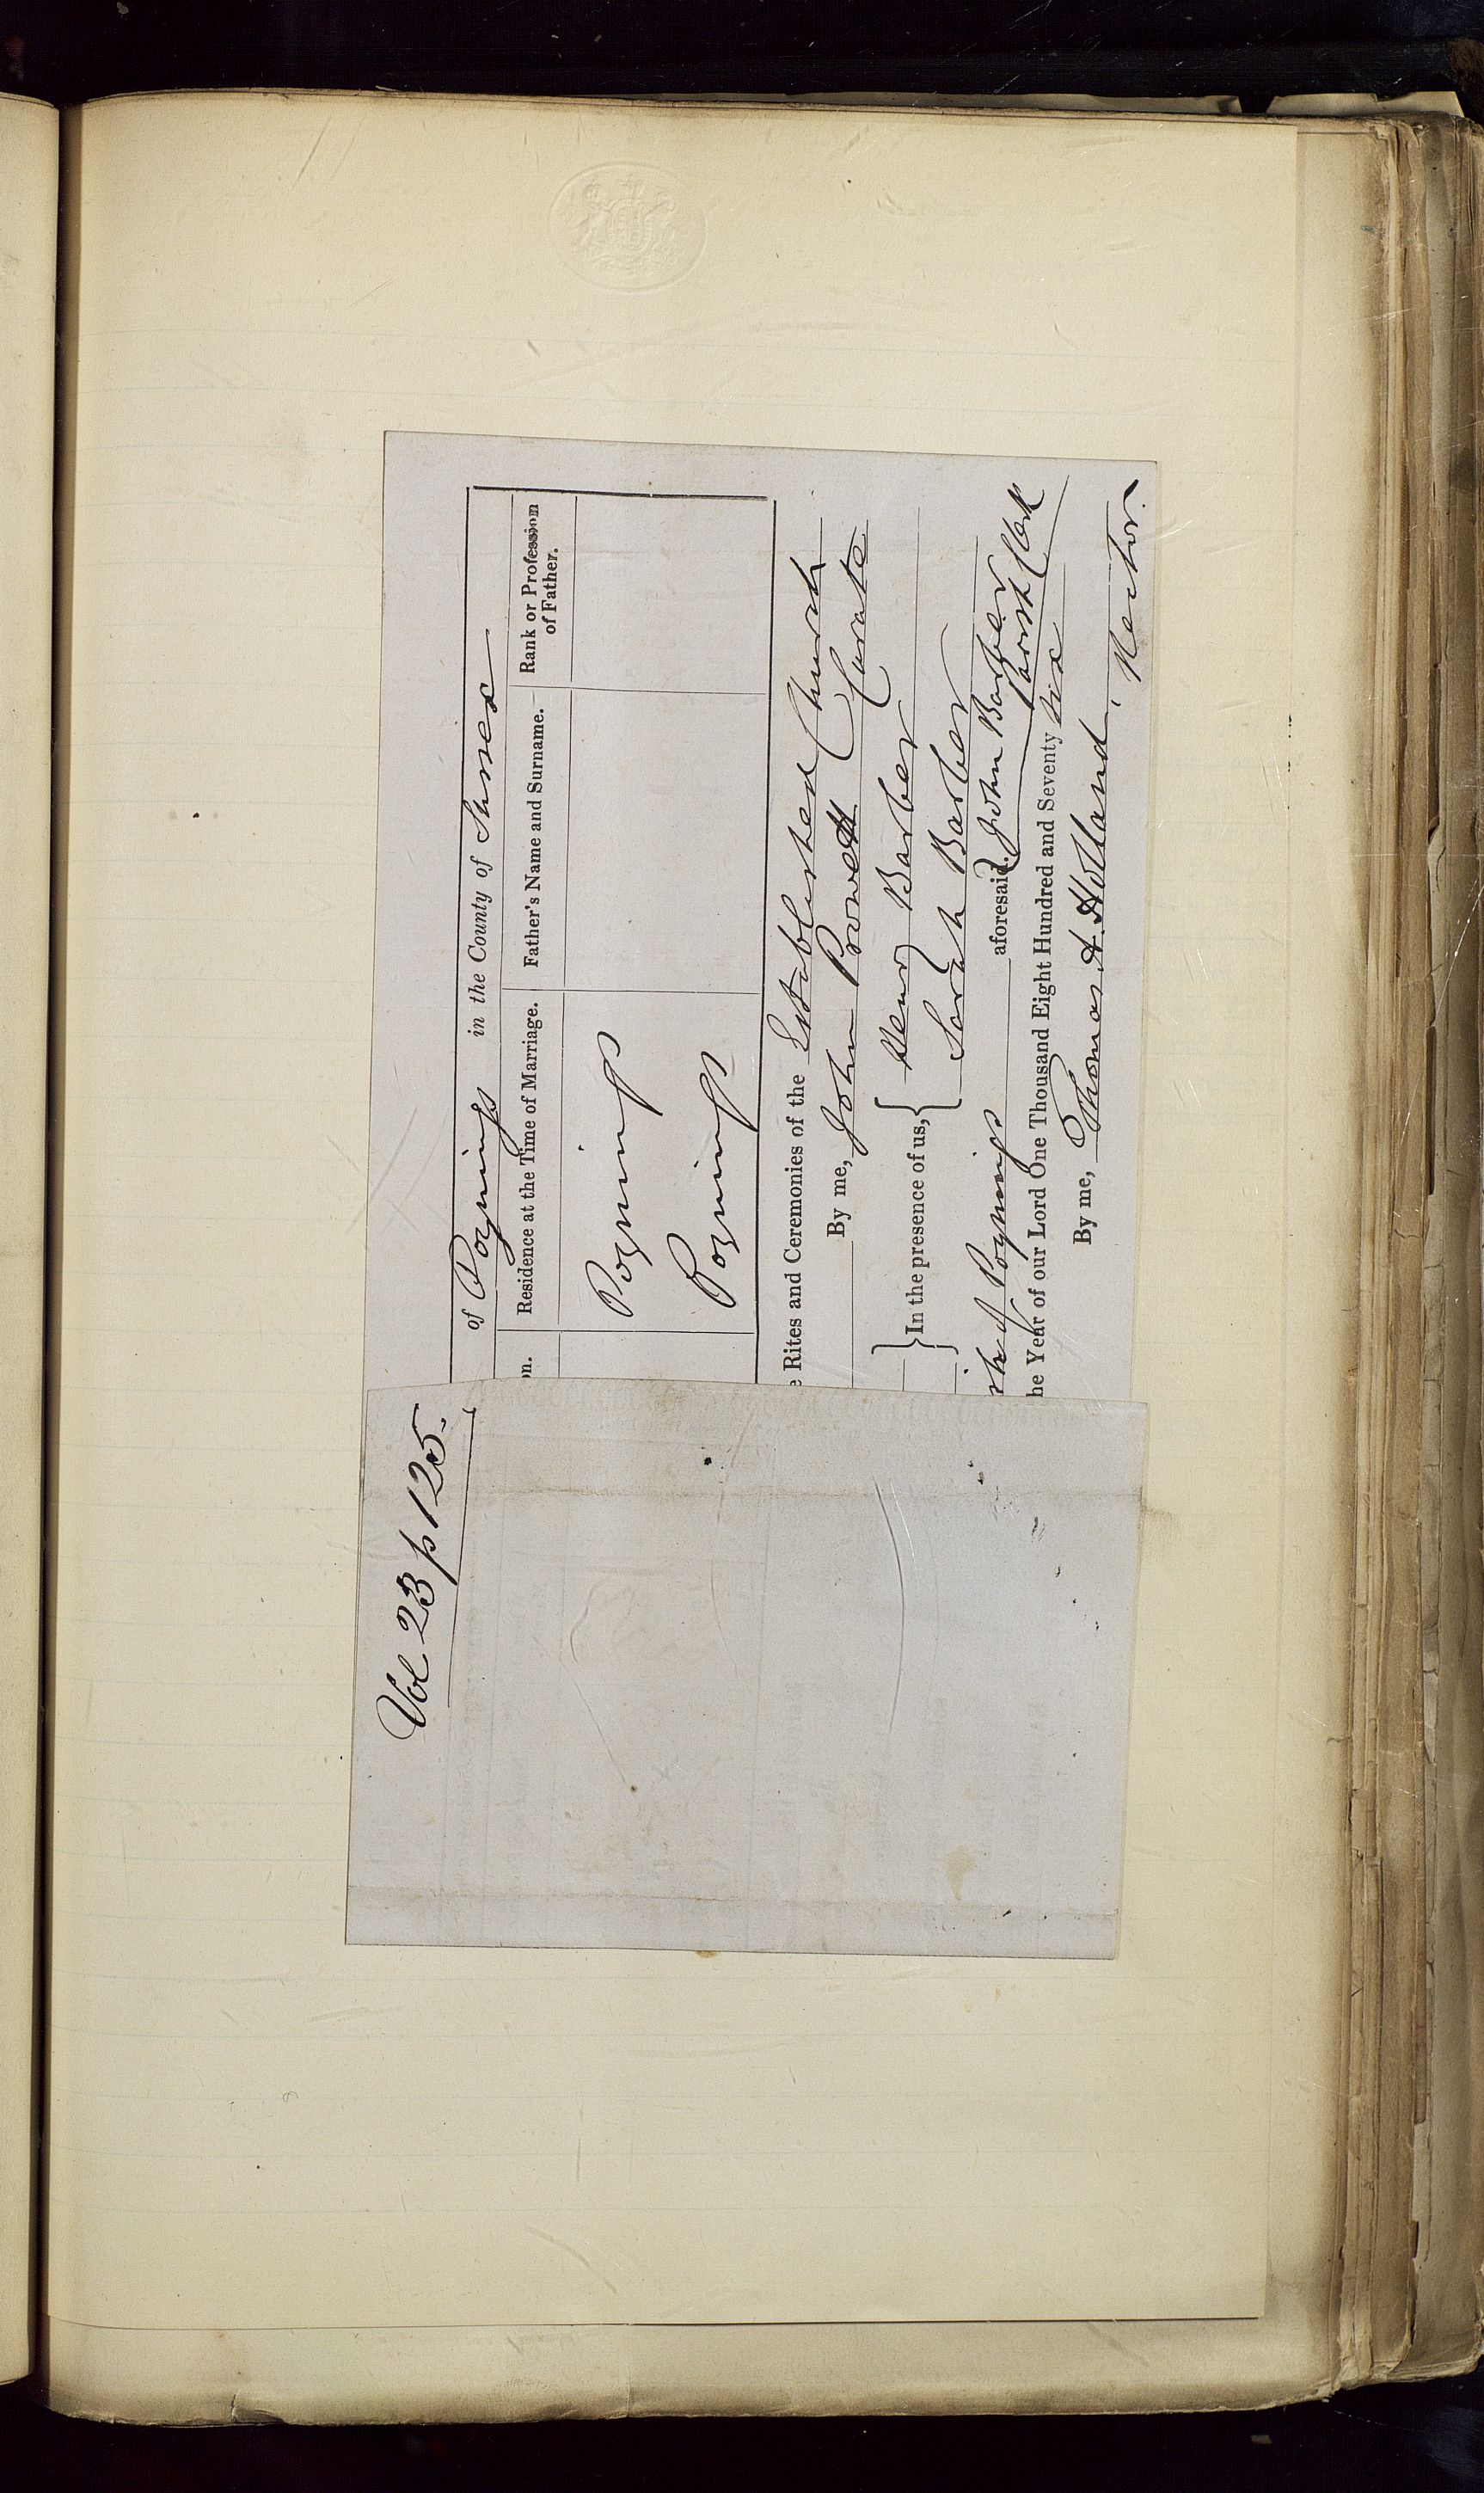 Vol 23 p 125.
of Poynings in the County of Sussex
on. Residence at the Time of Marriage. Father's Name and Surname. Rank or Profession
of Father.
Poynings
Poynings
e Rites and Ceremonies of the Established Church
By me, John Prowett Curate
In the presence of us, Henry Barber
Sarah Barber
sh of Poynings aforesaid. John Barber
Parish Clerk
he Year of our Lord One Thousand Eight Hundred and Seventy six
By me, Thomas A. Holland, Rector.